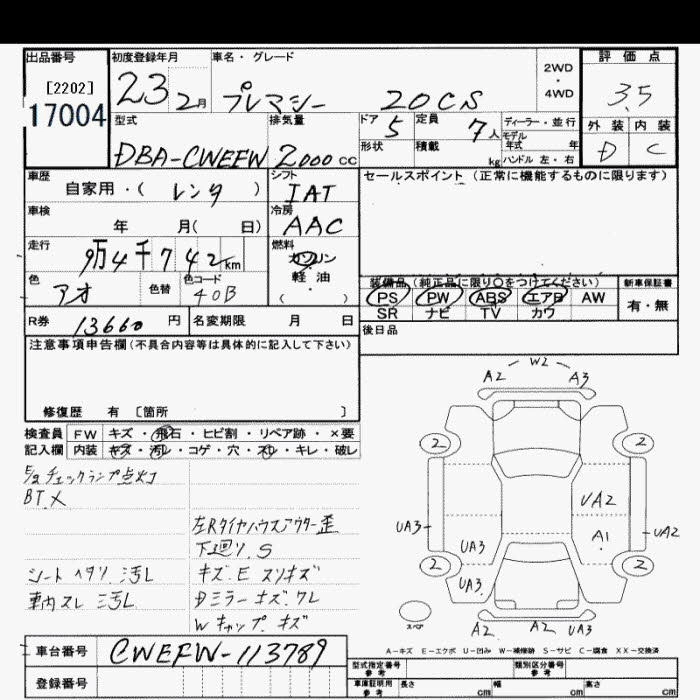 出品番号
[2202]
17004
初度登録年月
23 2月
車名・グレード
プレマシー 20CS
2WD
・
4WD
評価点
3.5
外装 内装
D C
型式
DBA-CWEFW
排気量
2000cc
ドア
5
定員
7人
形状
積載
kg
ディーラー・並行
モデル年式 年
ハンドル 左・右
車歴
自家用・(レンタ)
シフト
IAT
車検
年 月( 日)
冷房
AAC
走行
9万4千742km
燃料
ガソリン
・
軽油
( )
色
アオ
色替
色コード
40B
セールスポイント(正常に機能するものに限ります)
装備品(純正品に限り〇をつけてください)
PS PW ABS エアB AW
SR ナビ TV カワ
新車保証書
有・無
後日品
R券 13660円
名変期限 月 日
注意事項申告欄(不具合内容等は具体的に記入して下さい)
修復歴 有 〔箇所 〕
検査員 FW キズ・飛石・ヒビ割・リペア跡・×要
記入欄 内装 キズ・汚レ・コゲ・穴・スレ・キレ・破レ
チェックランプ点灯
BT.X
左Rタイヤハウスアウター歪
下廻り.S
シート ヘタリ.汚レ
キズ.E スリキズ
車内スレ 汚レ
Dミラーキズ.ワレ
Wキャップ.キズ
W2
A2 A3
2 2
UA2
UA3 UA2
A1
UA3
2 2
UA3
スペア
A2 A2 UA3
A-キズ E-エクボ U-凹み W-補修跡 S-サビ C-腐食 XX-交換済
車台番号 CWEFW-113789
登録番号
型式指定番号
参考
類別区分番号
参考
車庫証明用
参考
長さ cm 幅 cm 高さ cm